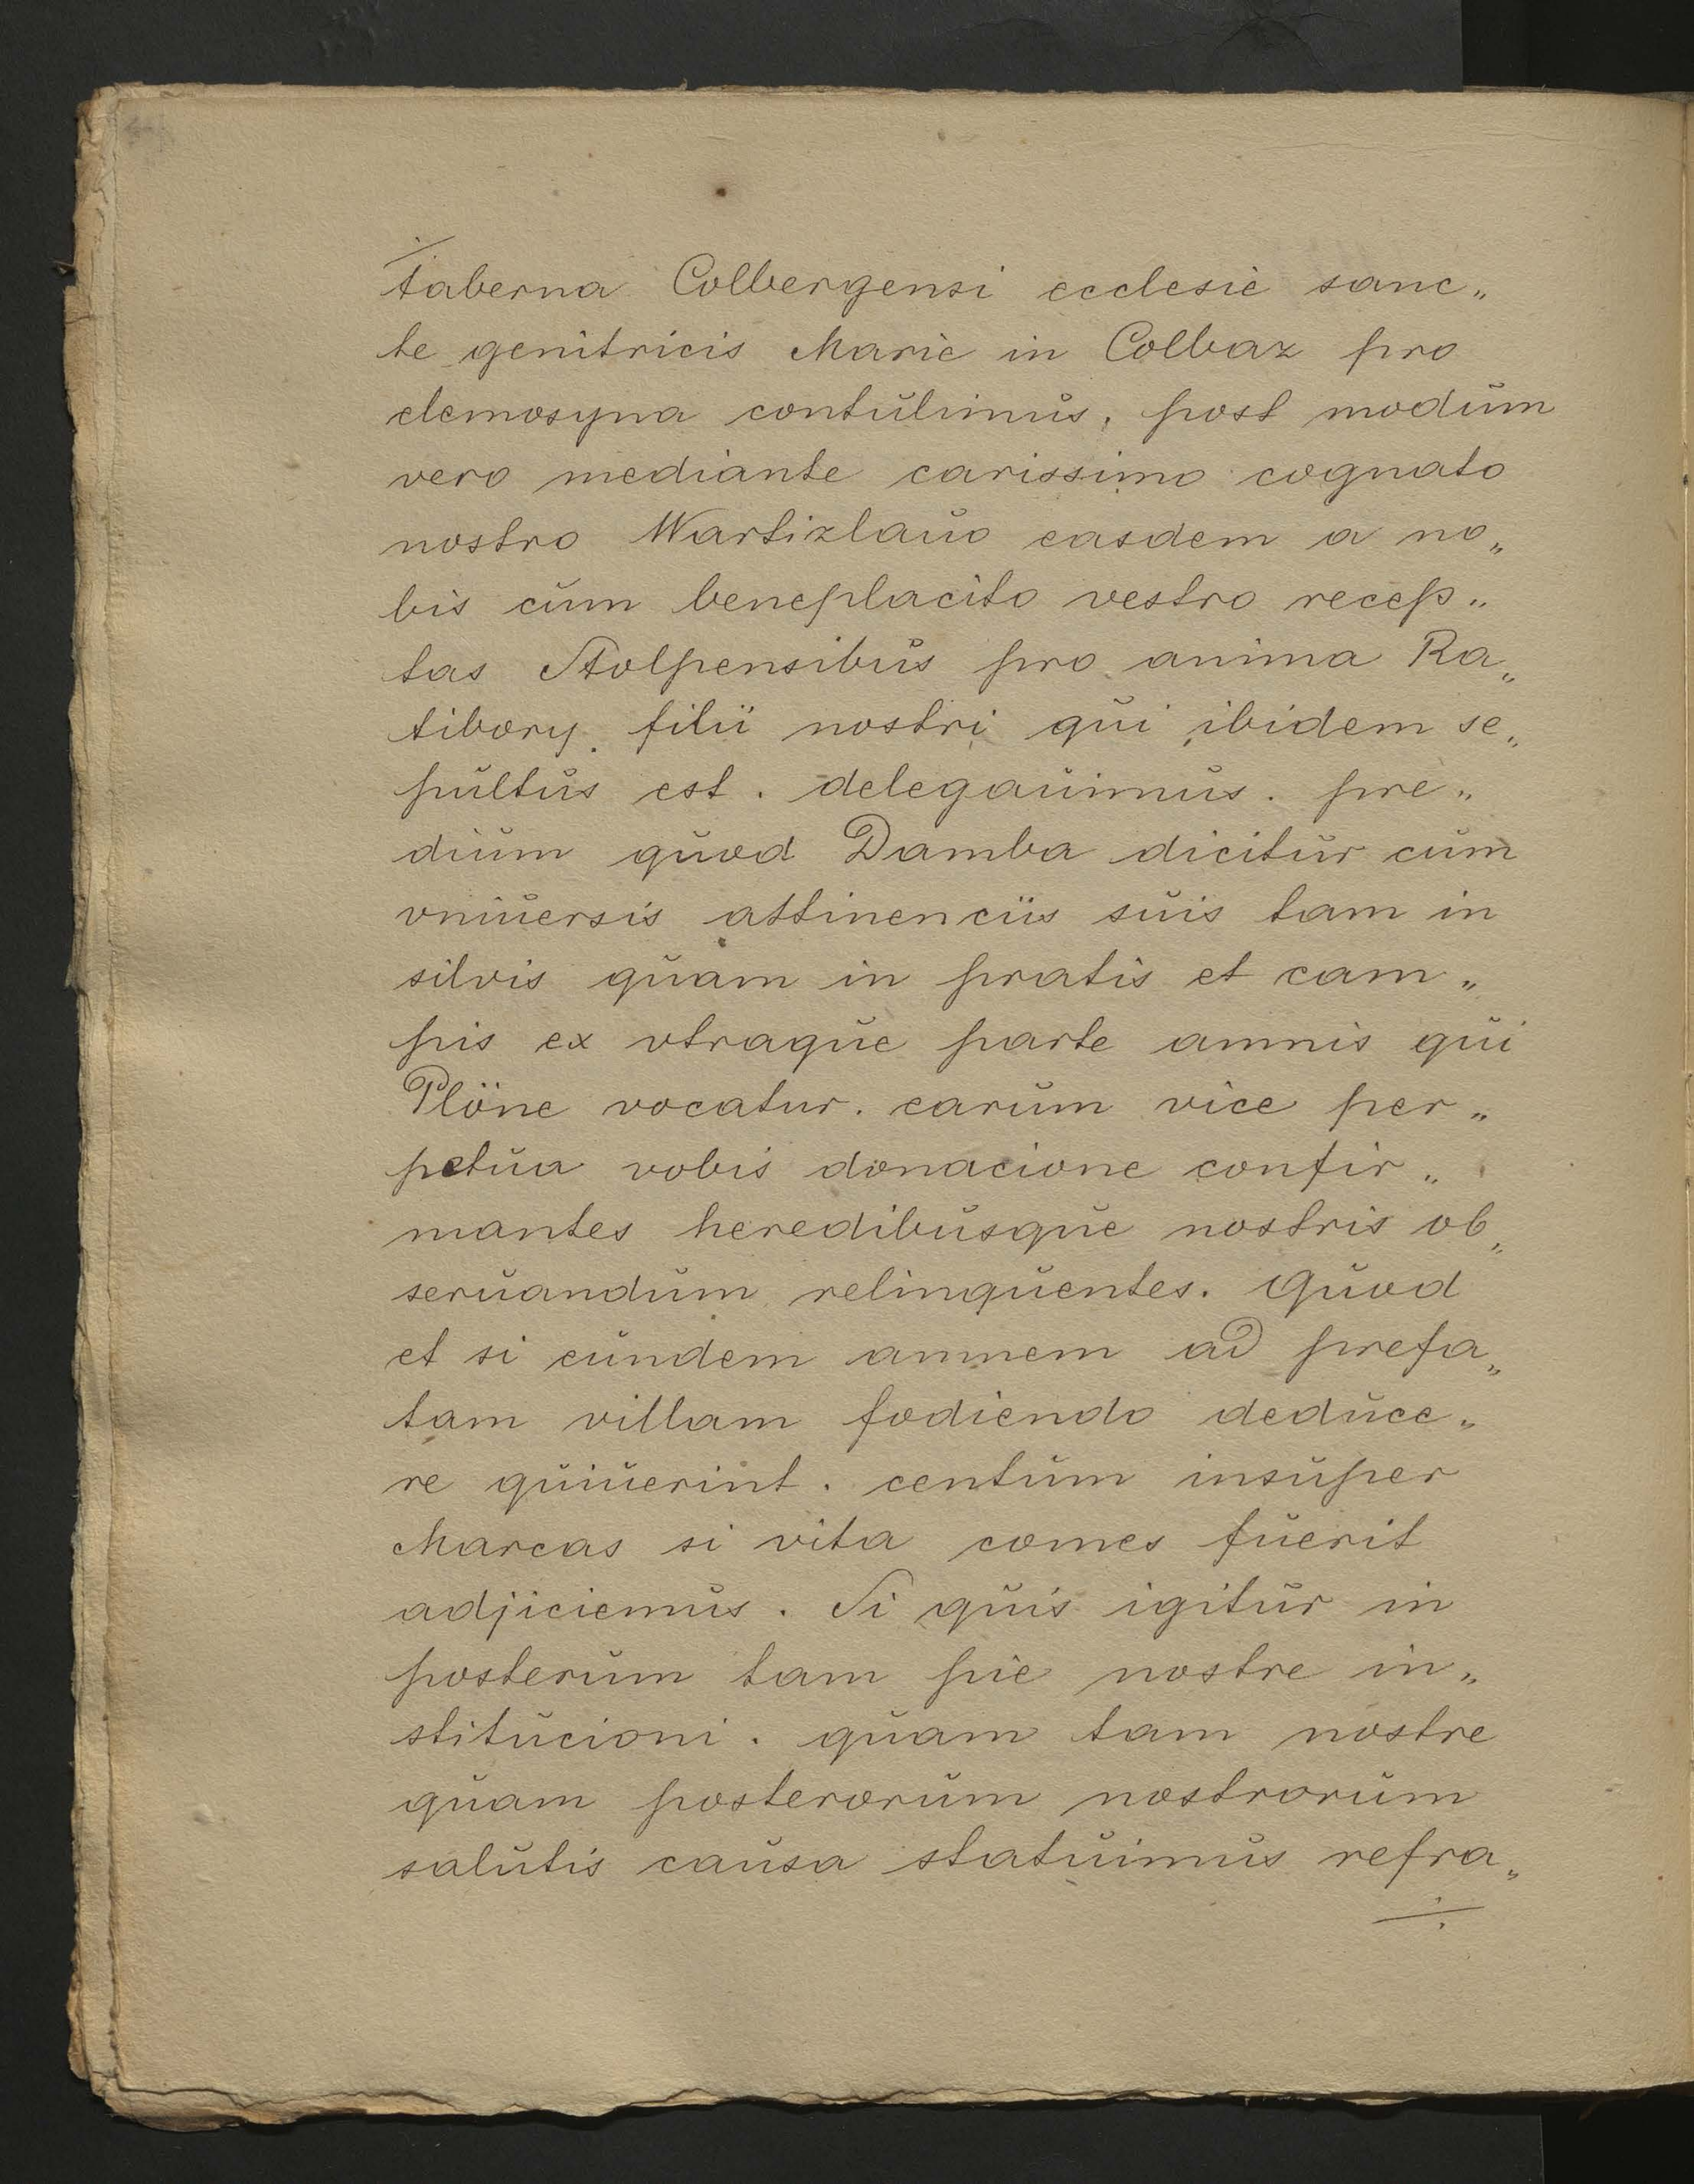 taberna Colbergensi ecclesie sanc„
te genitricis Marie in Colbaz pro
elemosyna contulimus, post modum
vero mediante carissimo cognato
nostro Wartizlauo easdem a no„
bis cum beneplacito vestro recep„
tas Stolpensibus pro anima Ra„
tibory. filii nostri qui ibidem se„
pultus est. delegauimus. pre„
dium quod Damba dicitur cum
vniuersis attinenciis suis tam in
silvis quam in pratis et cam„
pis ex vtraque parte amnis qui
Plöne vocatur. earum vice per„
petua vobis donacione confir„
mantes heredibusque nostris ob„
seruandum relinquentes. Quod
et si eundem amnem ad prefa„
tam villam fodiendo deduce„
re quiuerint. centum insuper
Marcas si vita comes fuerit
adjiciemus. Si quis igitur in
posterum tam pie nostre in„
stitucioni. quam tam nostre
quam posterorum nostrorum
salutis causa statuimus refra„